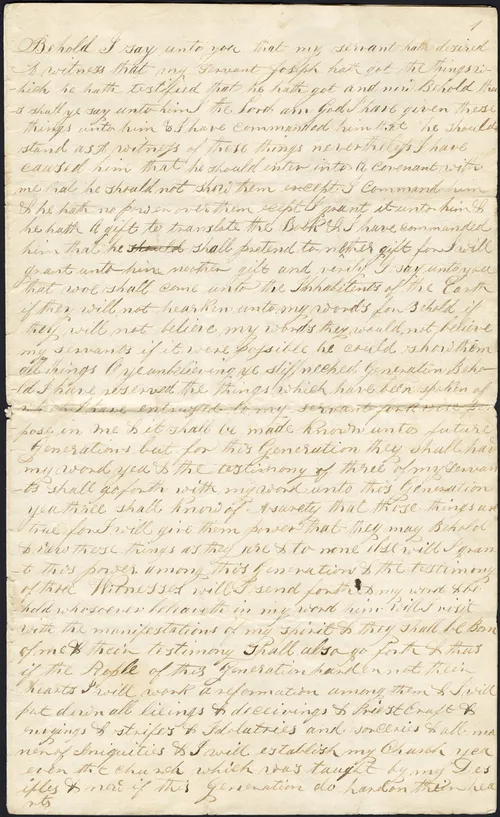 1
Behold I say unto you that my servant hath desired
A witness that my servant Joseph hath got the things w-
hich he hath testified that he hath got and now Behold this
s shall ye say unto him I the Lord am God I have given these
things unto him & I have commanded him that he should
stand as A witness of these things nevertheless I have
caused him that he should enter into A covenant with
me that he should not show them except I command him
& he hath no power over them except I grant it unto him &
he hath A gift to translate the Book & I have commanded
him that he should shall pretend to no other gift for I will
grant unto him no other gift and verily I say unto you
that woe shall come unto the Inhabitents of the Earth
if they will not hearken unto my words for Behold if
they will not believe my words they would not believe
my servants if it were possible he could show them
all things O ye unbelieving ye stiffnecked Generation Beho-
ld I have reserved the things which have been spoken of
which I have entrusted to my servant for a wise pur
pose in me & it shall be made known unto future
Generations but for this Generation they shall have
my word yea & the testimony of three of my servan
ts shall go forth with my word unto this Generation
yea three shall know of A surety that those things are
true for I will give them power that they may Behold
& view those things as they are & to none else will I gran
t this power among this Generation & the testimony
of three Witnesses will I send forth & my word & be
hold whosoever believeth in my word him will I visit
with the manifestations of my spirit & they shall be Born
of me & their testimony shall also go forth & thus
if the People of this Generation harden not their
hearts I will work a reformation among them & I will
put down all lieings & deceivings & Priest Craft &
envyings & strifes & Idolatries and sorceries & all ma
ner of Iniquities & I will establish my Church yea
even the church which was taught by my Des
iples & now if this Generation do harden their hea
rts